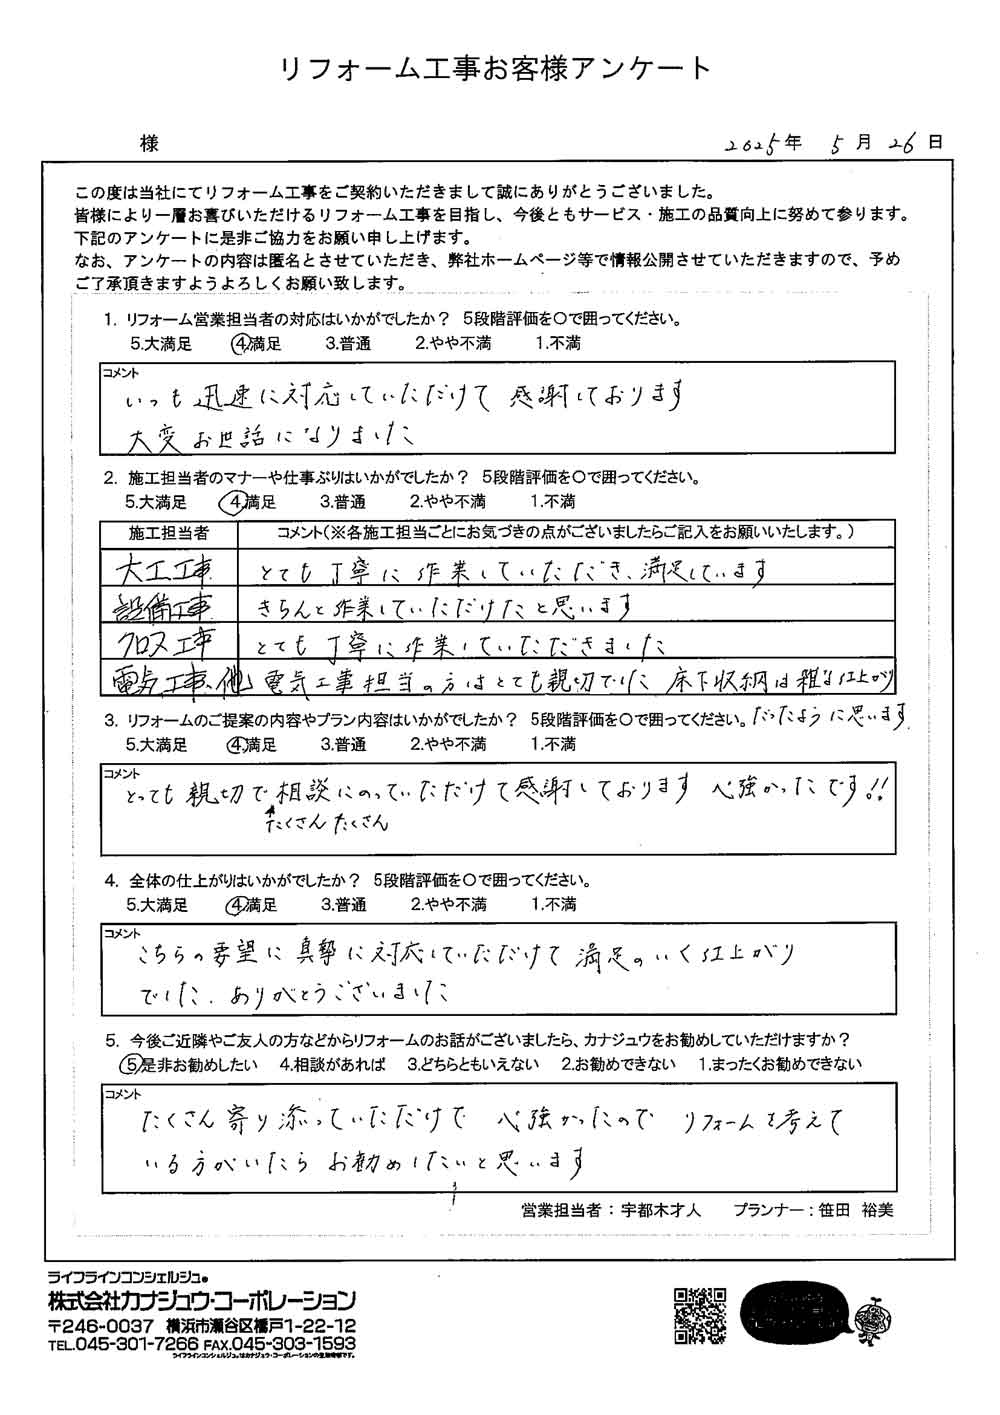 リフォーム工事お客様アンケート
様 2025年 5月 26日
この度は当社にてリフォーム工事をご契約いただきまして誠にありがとうございました。
皆様により一層お喜びいただけるリフォーム工事を目指し、今後ともサービス・施工の品質向上に努めて参ります。
下記のアンケートに是非ご協力をお願い申し上げます。
なお、アンケートの内容は匿名とさせていただき、弊社ホームページ等で情報公開させていただきますので、予め
ご了承頂きますようよろしくお願い致します。
1. リフォーム営業担当者の対応はいかがでしたか? 5段階評価を○で囲ってください。
5.大満足 4.満足 3.普通 2.やや不満 1.不満
コメント
いつも迅速に対応していただけて 感謝しております
大変お世話になりました
2. 施工担当者のマナーや仕事ぶりはいかがでしたか? 5段階評価を○で囲ってください。
5.大満足 4.満足 3.普通 2.やや不満 1.不満
施工担当者 コメント(※各施工担当ごとにお気づきの点がございましたらご記入をお願いいたします。)
大工工事 とても丁寧に作業していただき、満足しています
設備工事 きちんと作業していただけたと思います
クロス工事 とても丁寧に作業していただきました
電気工事、他 電気工事担当の方はとても親切でした 床下収納は雑な仕上がり
だったように思います
3. リフォームのご提案の内容やプラン内容はいかがでしたか? 5段階評価を○で囲ってください。
5.大満足 4.満足 3.普通 2.やや不満 1.不満
コメント
とっても親切で相談にのっていただけて感謝しております 心強かったです!!
たくさんたくさん
4. 全体の仕上がりはいかがでしたか? 5段階評価を○で囲ってください。
5.大満足 4.満足 3.普通 2.やや不満 1.不満
コメント
こちらの要望に真摯に対応していただけて満足のいく仕上がり
でした.ありがとうございました
5. 今後ご近隣やご友人の方などからリフォームのお話がございましたら、カナジュウをお勧めしていただけますか?
5.是非お勧めしたい 4.相談があれば 3.どちらともいえない 2.お勧めできない 1.まったくお勧めできない
コメント
たくさん寄り添っていただけて 心強かったので リフォームを考えて
いる方がいたら お勧めしたいと思います
営業担当者:宇都木才人 プランナー:笹田 裕美
ライフラインコンシェルジュ。
株式会社カナジュウ・コーポレーション
〒246-0037 横浜市瀬谷区橋戸1-22-12
TEL.045-301-7266 FAX.045-303-1593
ライフラインコンシェルジュ。はカナジュウ・コーポレーションの登録商標です。